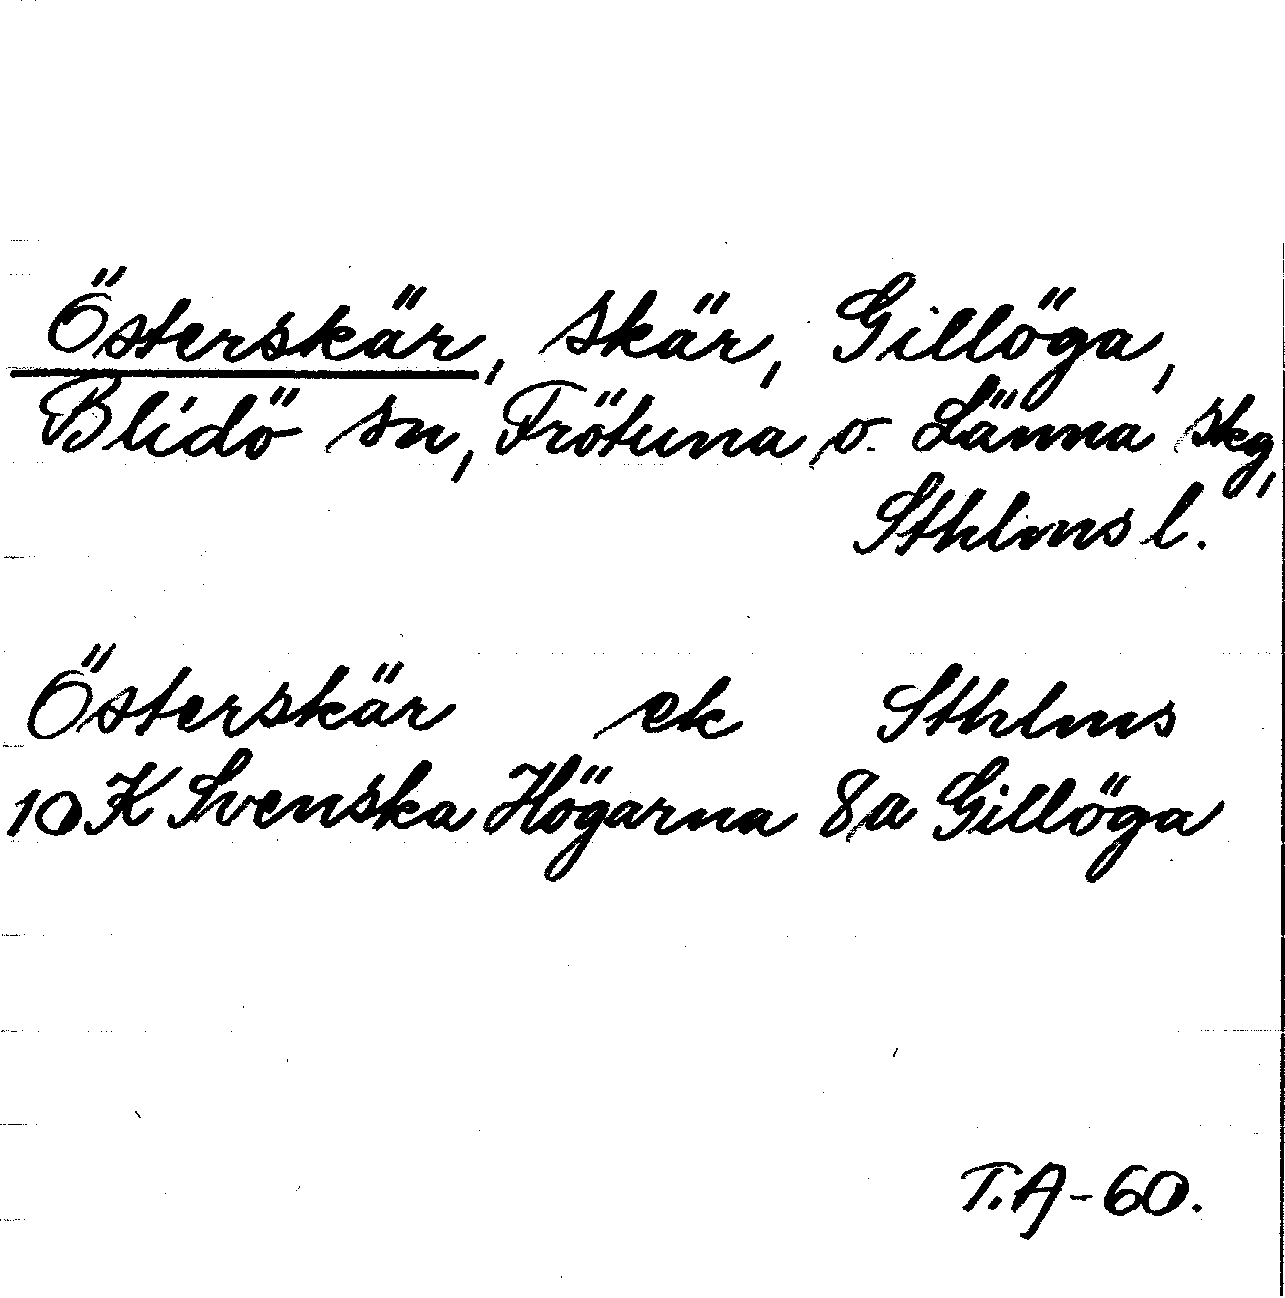 Österskär, skär, Gillöga,
Blidö sn, Frötuna o. Länna skg,
Sthlms l.
Österskär ek Sthlms
10 K Svenska Högarna 8a Gillöga
T.A-60.